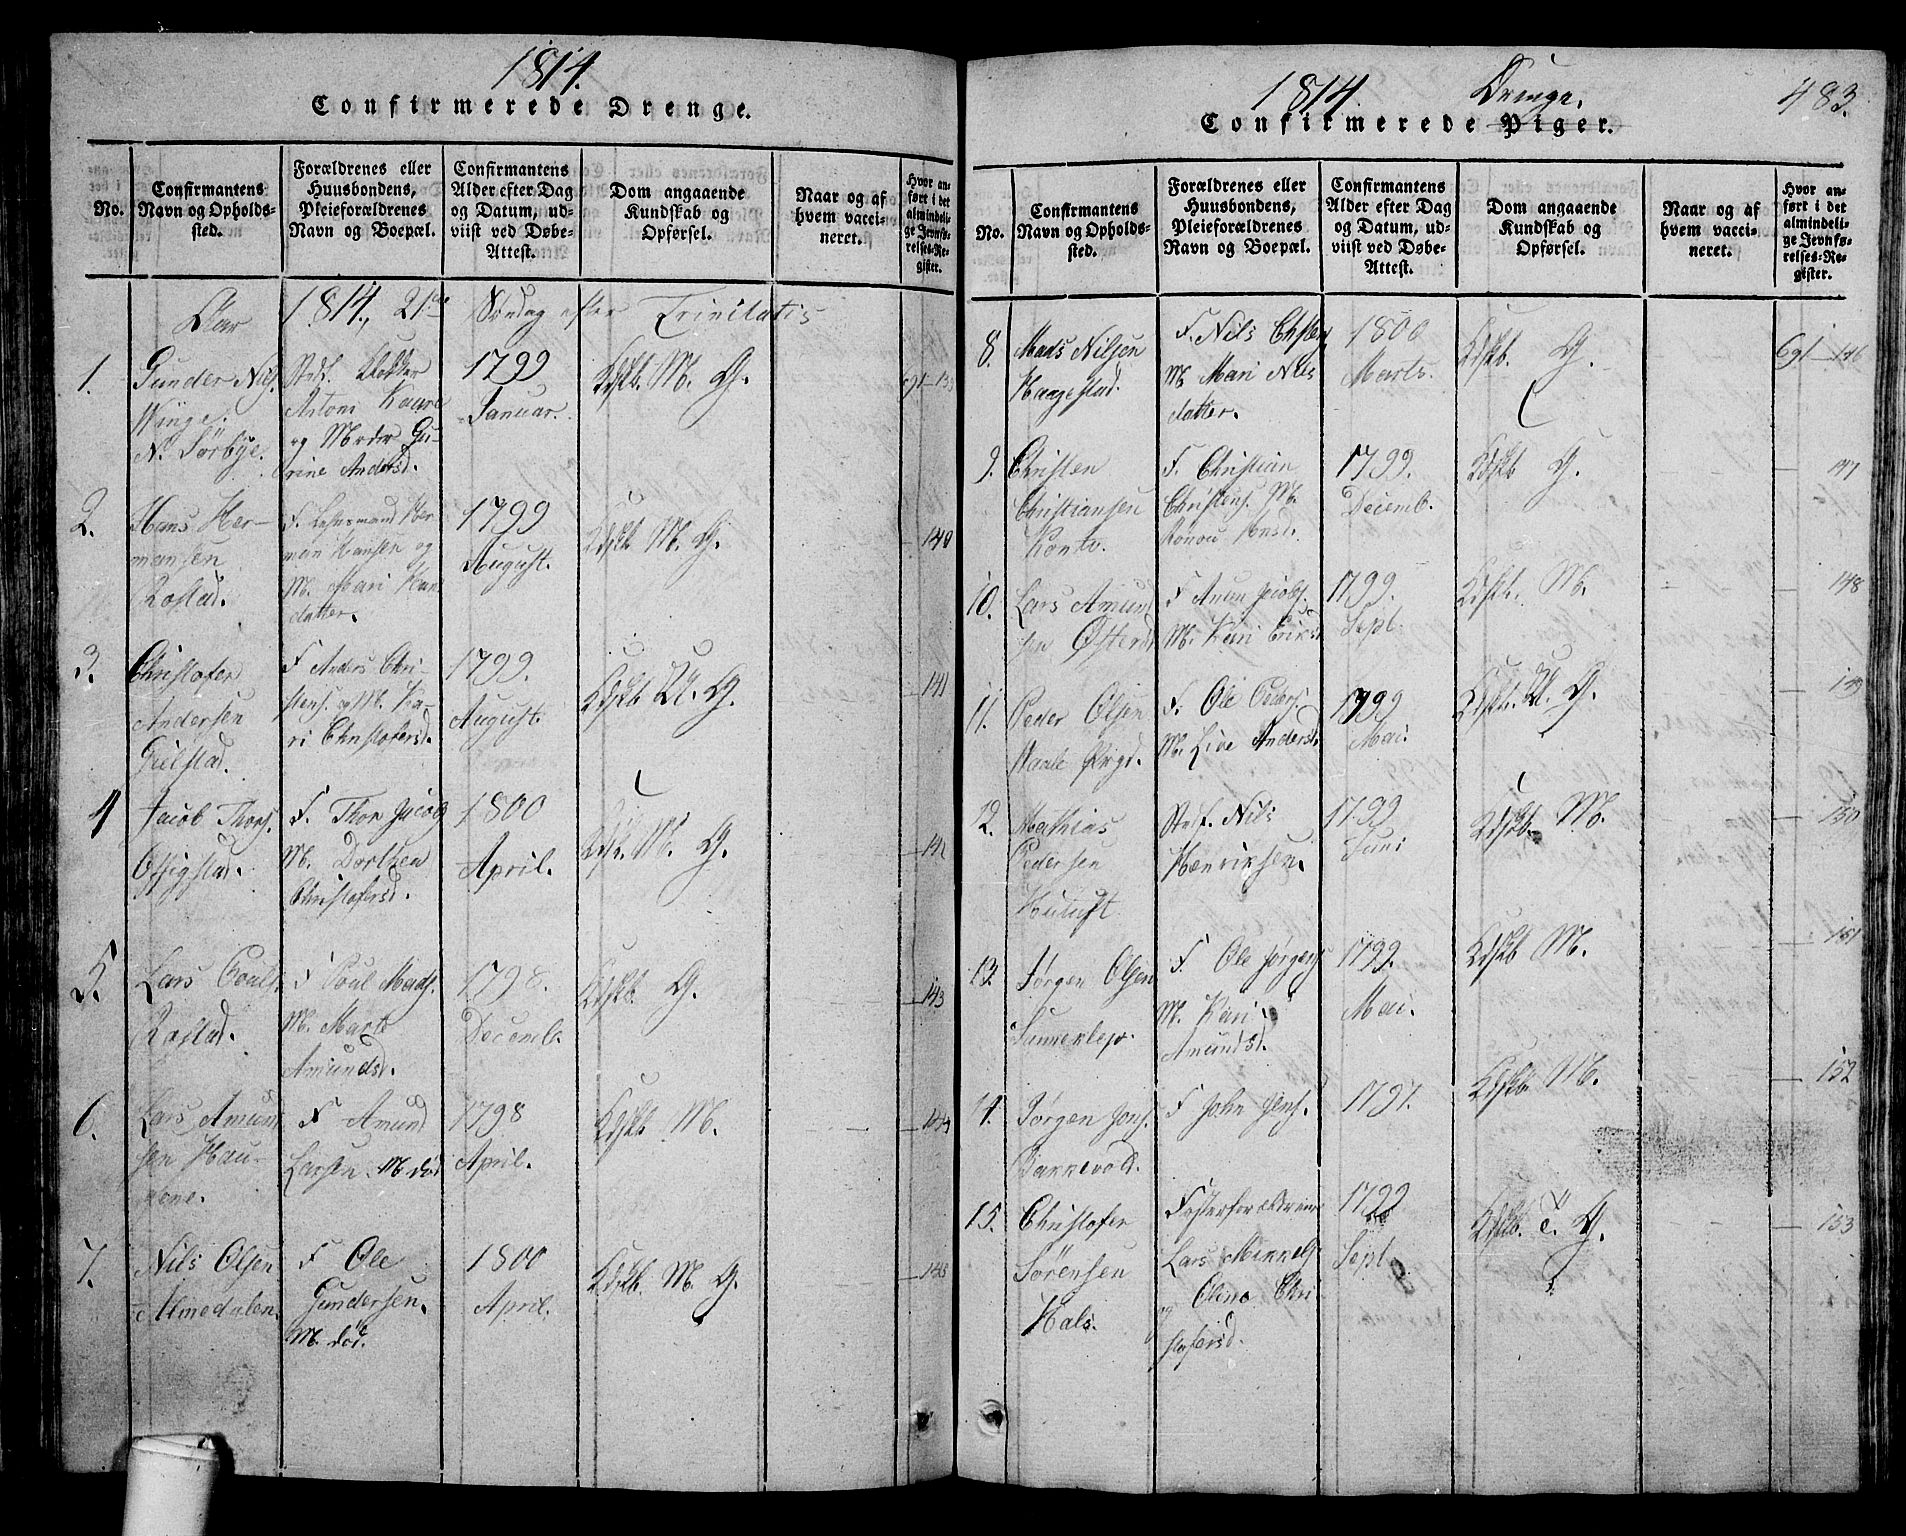 1814.
Confirmerede Drenge.
No.
Confirmantens
Navn og Opholds-
sted.
Forældrenes eller
Huusbondens,
Pleieforældrenes
Navn og Boepæl.
Confirmantens
Alder efter Dag
og Datum, ud-
viist ved Døbe-
Attest.
Dom angaaende
Kundskab og
Opførsel.
Naar og af
hvem vacci-
neret.
Hvor an-
ført i det
almindeli-
ge Jevnfø-
relses-Re-
gister.
Aar 1814, 21de Søndag efter Trinitatis
1.
Gunder Nils.
Winge.
N. Sörbye.
Stedf. Klokker
Antoni Kaure
og Moder Gu-
rine Andersd.
1799
Januar.
Kdskb. M. G.
2.
Hans Her-
mansen
Rostad.
F. Lehnsmand Her
man Hansen og
M. Mari Han
datter.
1799
August.
Kdskb. M. G.
140
3.
Christofer
Andersen
F. Anders Chri-
stens. og M. Ka-
ri Christofersd.
1799.
August.
Kdskb. M. G.
141
4
Jacob Thors.
F. Thor Jacob
M. Dorthea
Christofersd.
1800
April.
Kdsk. M. G.
142
5.
Lars Pouls.
Rostad.
F Poul Mads.
M. Marte
Amundsd.
1798.
Decemb.
Kdskb. G.
143
6.
Lars Amun
sen Hau-
gene.
F Amund
Larsen. M. död
1798
April.
Kdskb. M.
144
7.
Nils Olsen
Almedalen.
F Ole
Gundersen.
M. död.
1800
April.
Kdskb. M. G.
145
1814. Drenge. 483.
Confirmerede Piger.
No.
Confirmantens
Navn og Opholds-
sted.
Forældrenes eller
Huusbondens,
Pleieforældrenes
Navn og Boepæl.
Confirmantens
Alder efter Dag
og Datum, ud-
viist ved Døbe-
Attest.
Dom angaaende
Kundskab og
Opførsel.
Naar og af
hvem vacci-
neret.
Hvor an-
ført i det
almindeli-
ge Jevnfø-
relses-Re-
gister.
8.
Mads Nilsen
Haagestad.
F. Nils
M. Mari Nils
datter.
1800
Marts.
Kdskb. G.
691 146
9.
Christen
Christiansen
F. Christian
Christens. M.
1799.
Decemb.
Kdskb G.
147
10.
Lars Amund
sen
F Amun Jacobs.
M. Kari Eriksd
1799.
Sept.
Kdskb. M.
148
11.
Peder Olsen
F. Ole Peders.
M. Live Andersd.
1799
Mai.
Kdskb. M. G.
149
12.
Mathias
Pedersen
Stedf. Nils
Henriksen.
1799
Juni
Kdskb. M.
150
13.
Jörgen Olsen
F. Ole Jörgens
M. Kari
Amundsd.
1799.
Mai.
Kdskb M.
151
14.
Jörgen Jons.
F John Jens.
1797.
Kdskb. M.
152
15.
Christofer
Sörensen
Hals.
Fosterforældrene
Lars
og Oline Chri
stofersd.
1799
Sept
Kdskb. G.
153